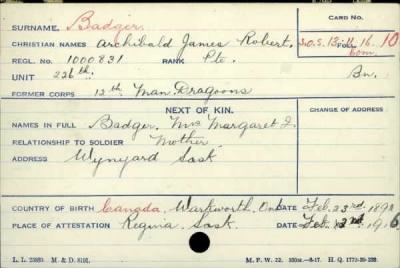 CARD NO.
SURNAME. Badger.
CHRISTIAN NAMES Archibald James Robert. S.O.S. 13-11-16. 10
FOLL.
Com.
REGL. No. 1000831. RANK Pte.
UNIT 226th. Bn.
FORMER CORPS 12th Man. Dragoons
NEXT OF KIN.
CHANGE OF ADDRESS
NAMES IN FULL Badger, Mrs Margaret J.
RELATIONSHIP TO SOLDIER Mother
ADDRESS Wynyard Sask
COUNTRY OF BIRTH Canada, Warkworth, Ont DATE Feb. 23rd.
PLACE OF ATTESTATION Regina Sask. DATE Feb. 1916
L. L. M. & D. 8191. M. F. W. 22.